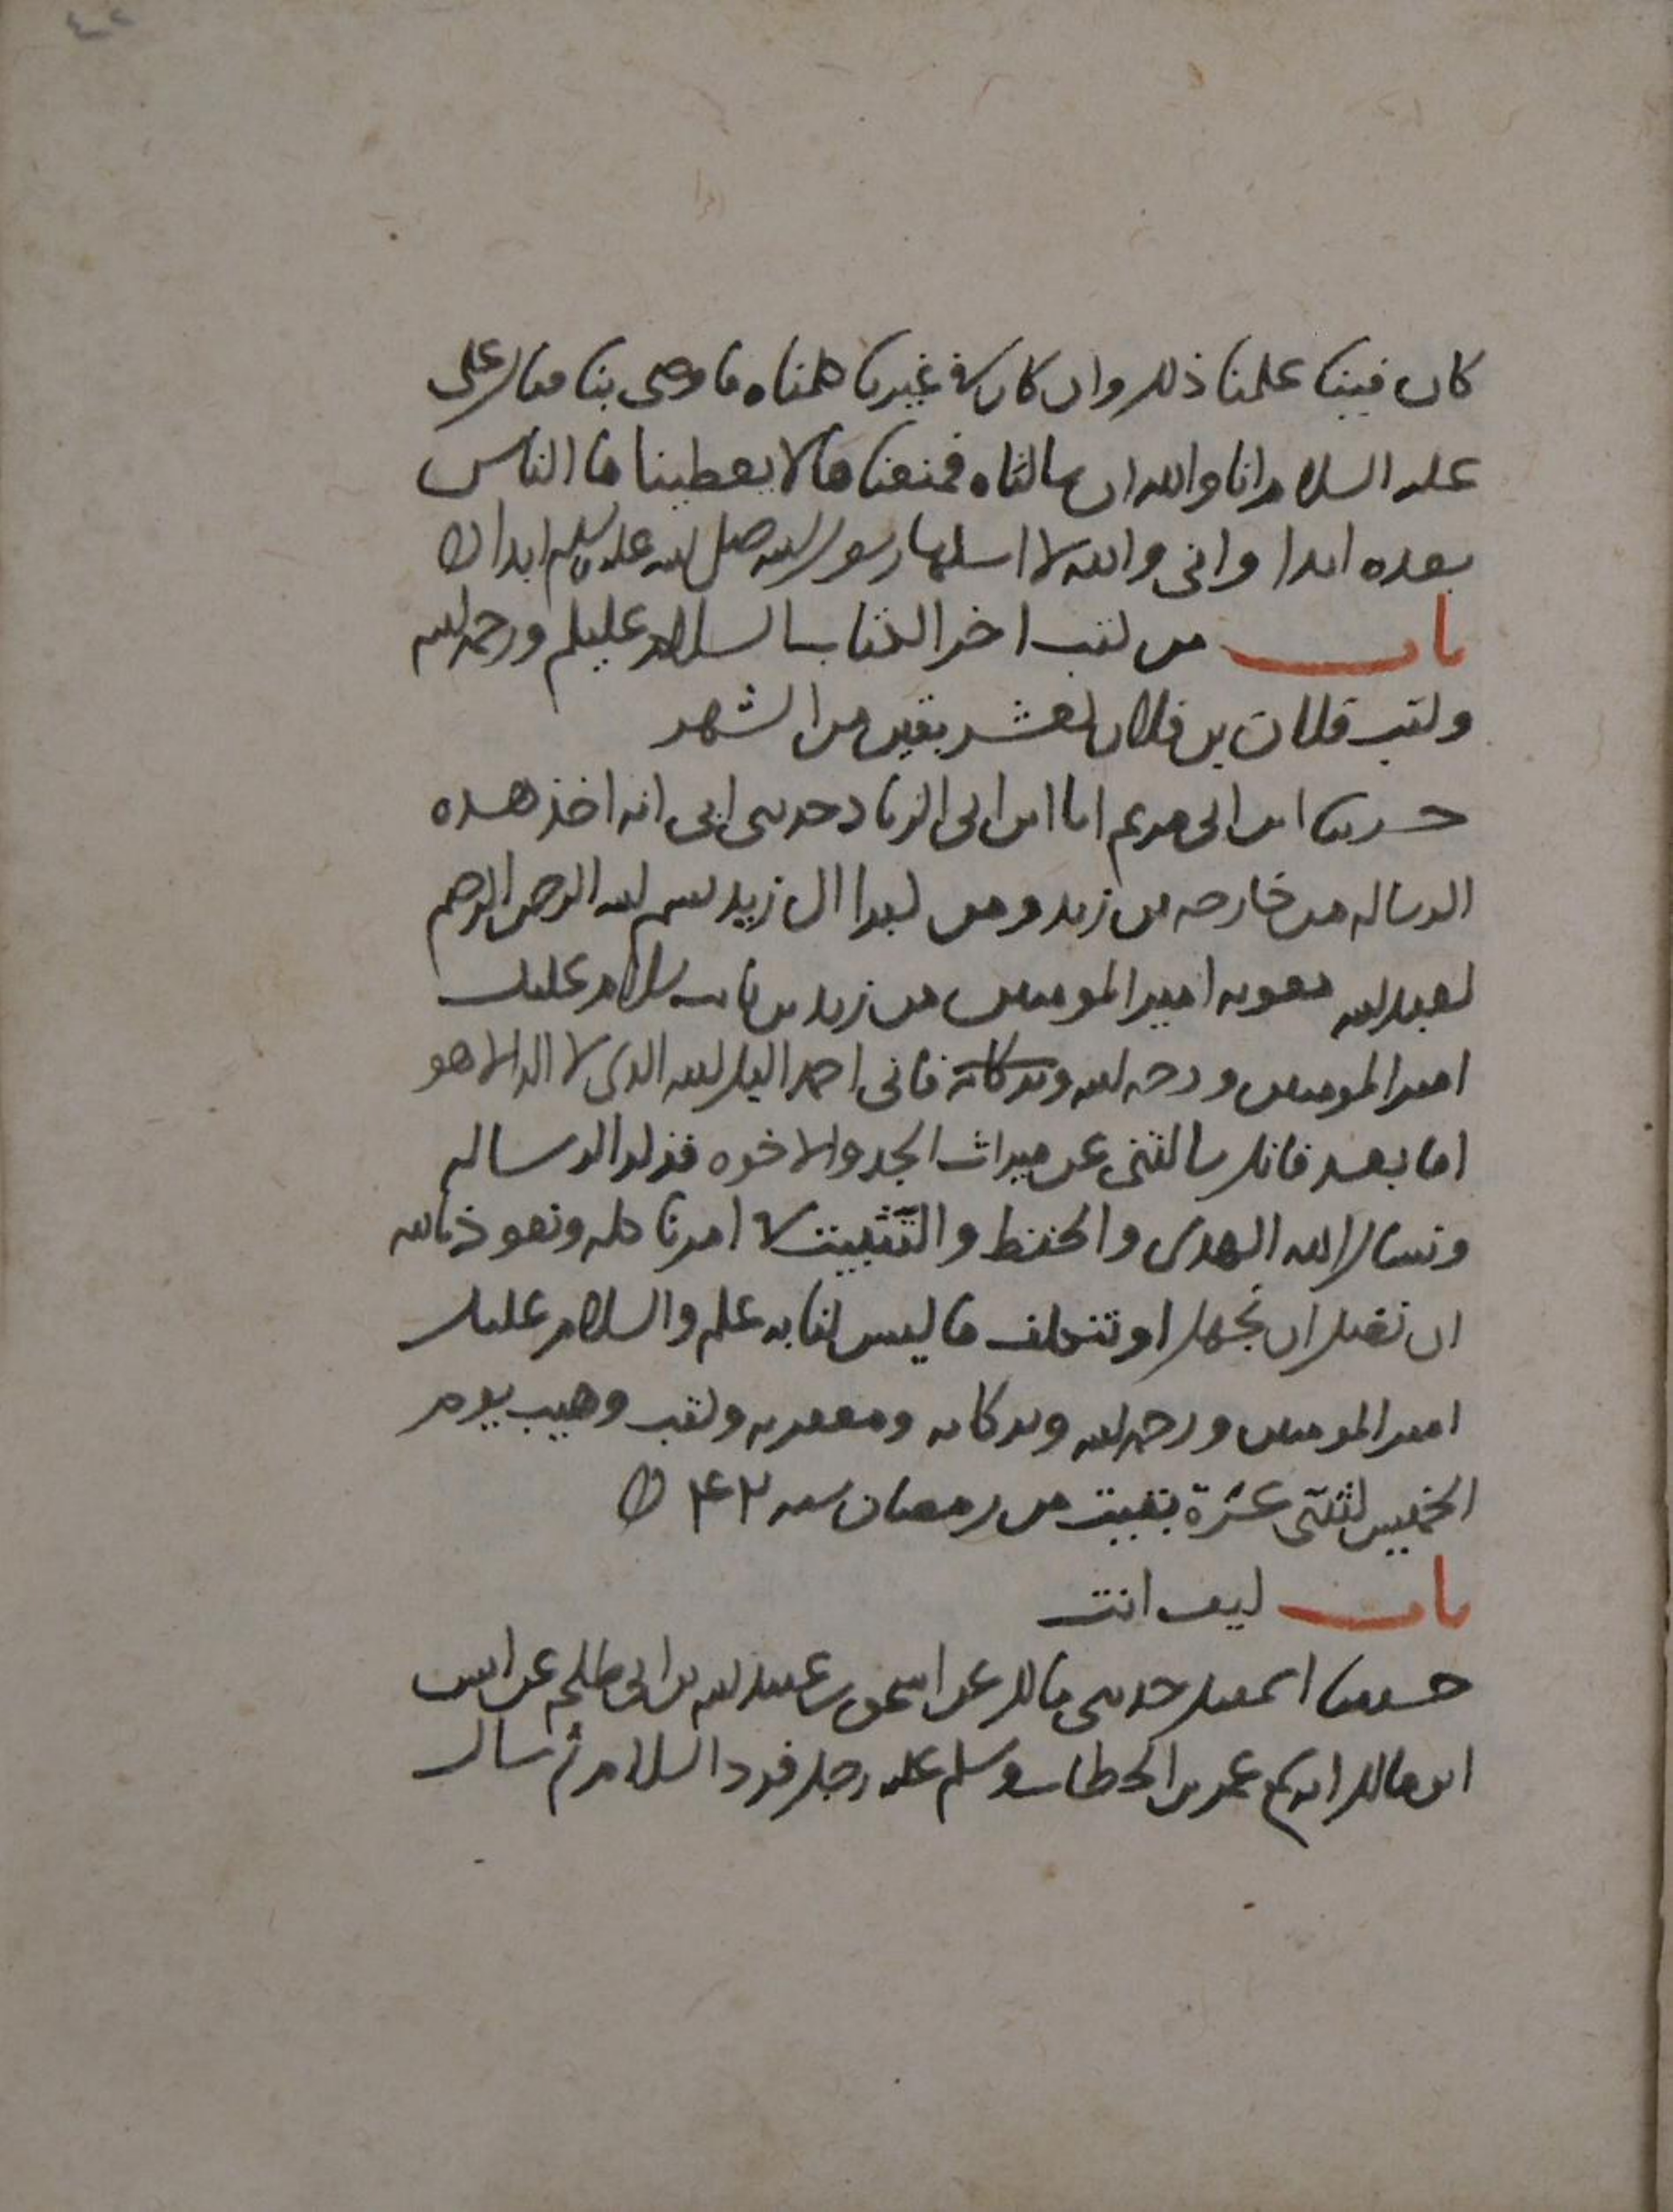 كان فينا علمنا ذلك وان كان في غيرنا كلمناه فاوصى بنا فقال على
عليه السلام انا والله ان سالناه فمنعنا ها لا يعطيناها الناس
بعده ابدا واني والله لا اسلها رسول الله صلى الله عليه وسلم ابدا
باب من كتب اخر الكتاب السلام عليكم ورحمة الله
وكتب فلان بن فلان لعشر بقين من الشهر
حدثنا ابن ابي مريم انا ابن ابي الزناد حدثني ابي انه اخذ هذه
الرساله من خارجه بن زيد ومن كبرا ال زيد بسم الله الرحمن الرحيم
لعبد الله معويه امير المومنين من زيد بن ثابت سلام عليك
امير المومنين ورحمه الله وبركاته فاني احمد اليك الله الذي لا اله الا هو
اما بعد فانك سالتني عن ميراث الجد والاخوه فذكر الرساله
ونسال الله الهدى والحفظ والتثبيت في امرنا كله ونعوذ بالله
ان نضل او نجهل او نتكلف ما ليس لنا به علم والسلام عليك
امير المومنين ورحمه الله وبركاته ومغفرته وكتب وهيب يوم
الخميس لثنتى عشرة بقيت من رمضان سنه ۴۲
باب كيف انت
حدثنا اسمعيل حدثني مالك عن اسحق بن عبد الله بن ابي طلحه عن انس
ابن مالك انه سمع عمر بن الخطاب وسلم عليه رجل فرد السلام ثم سال